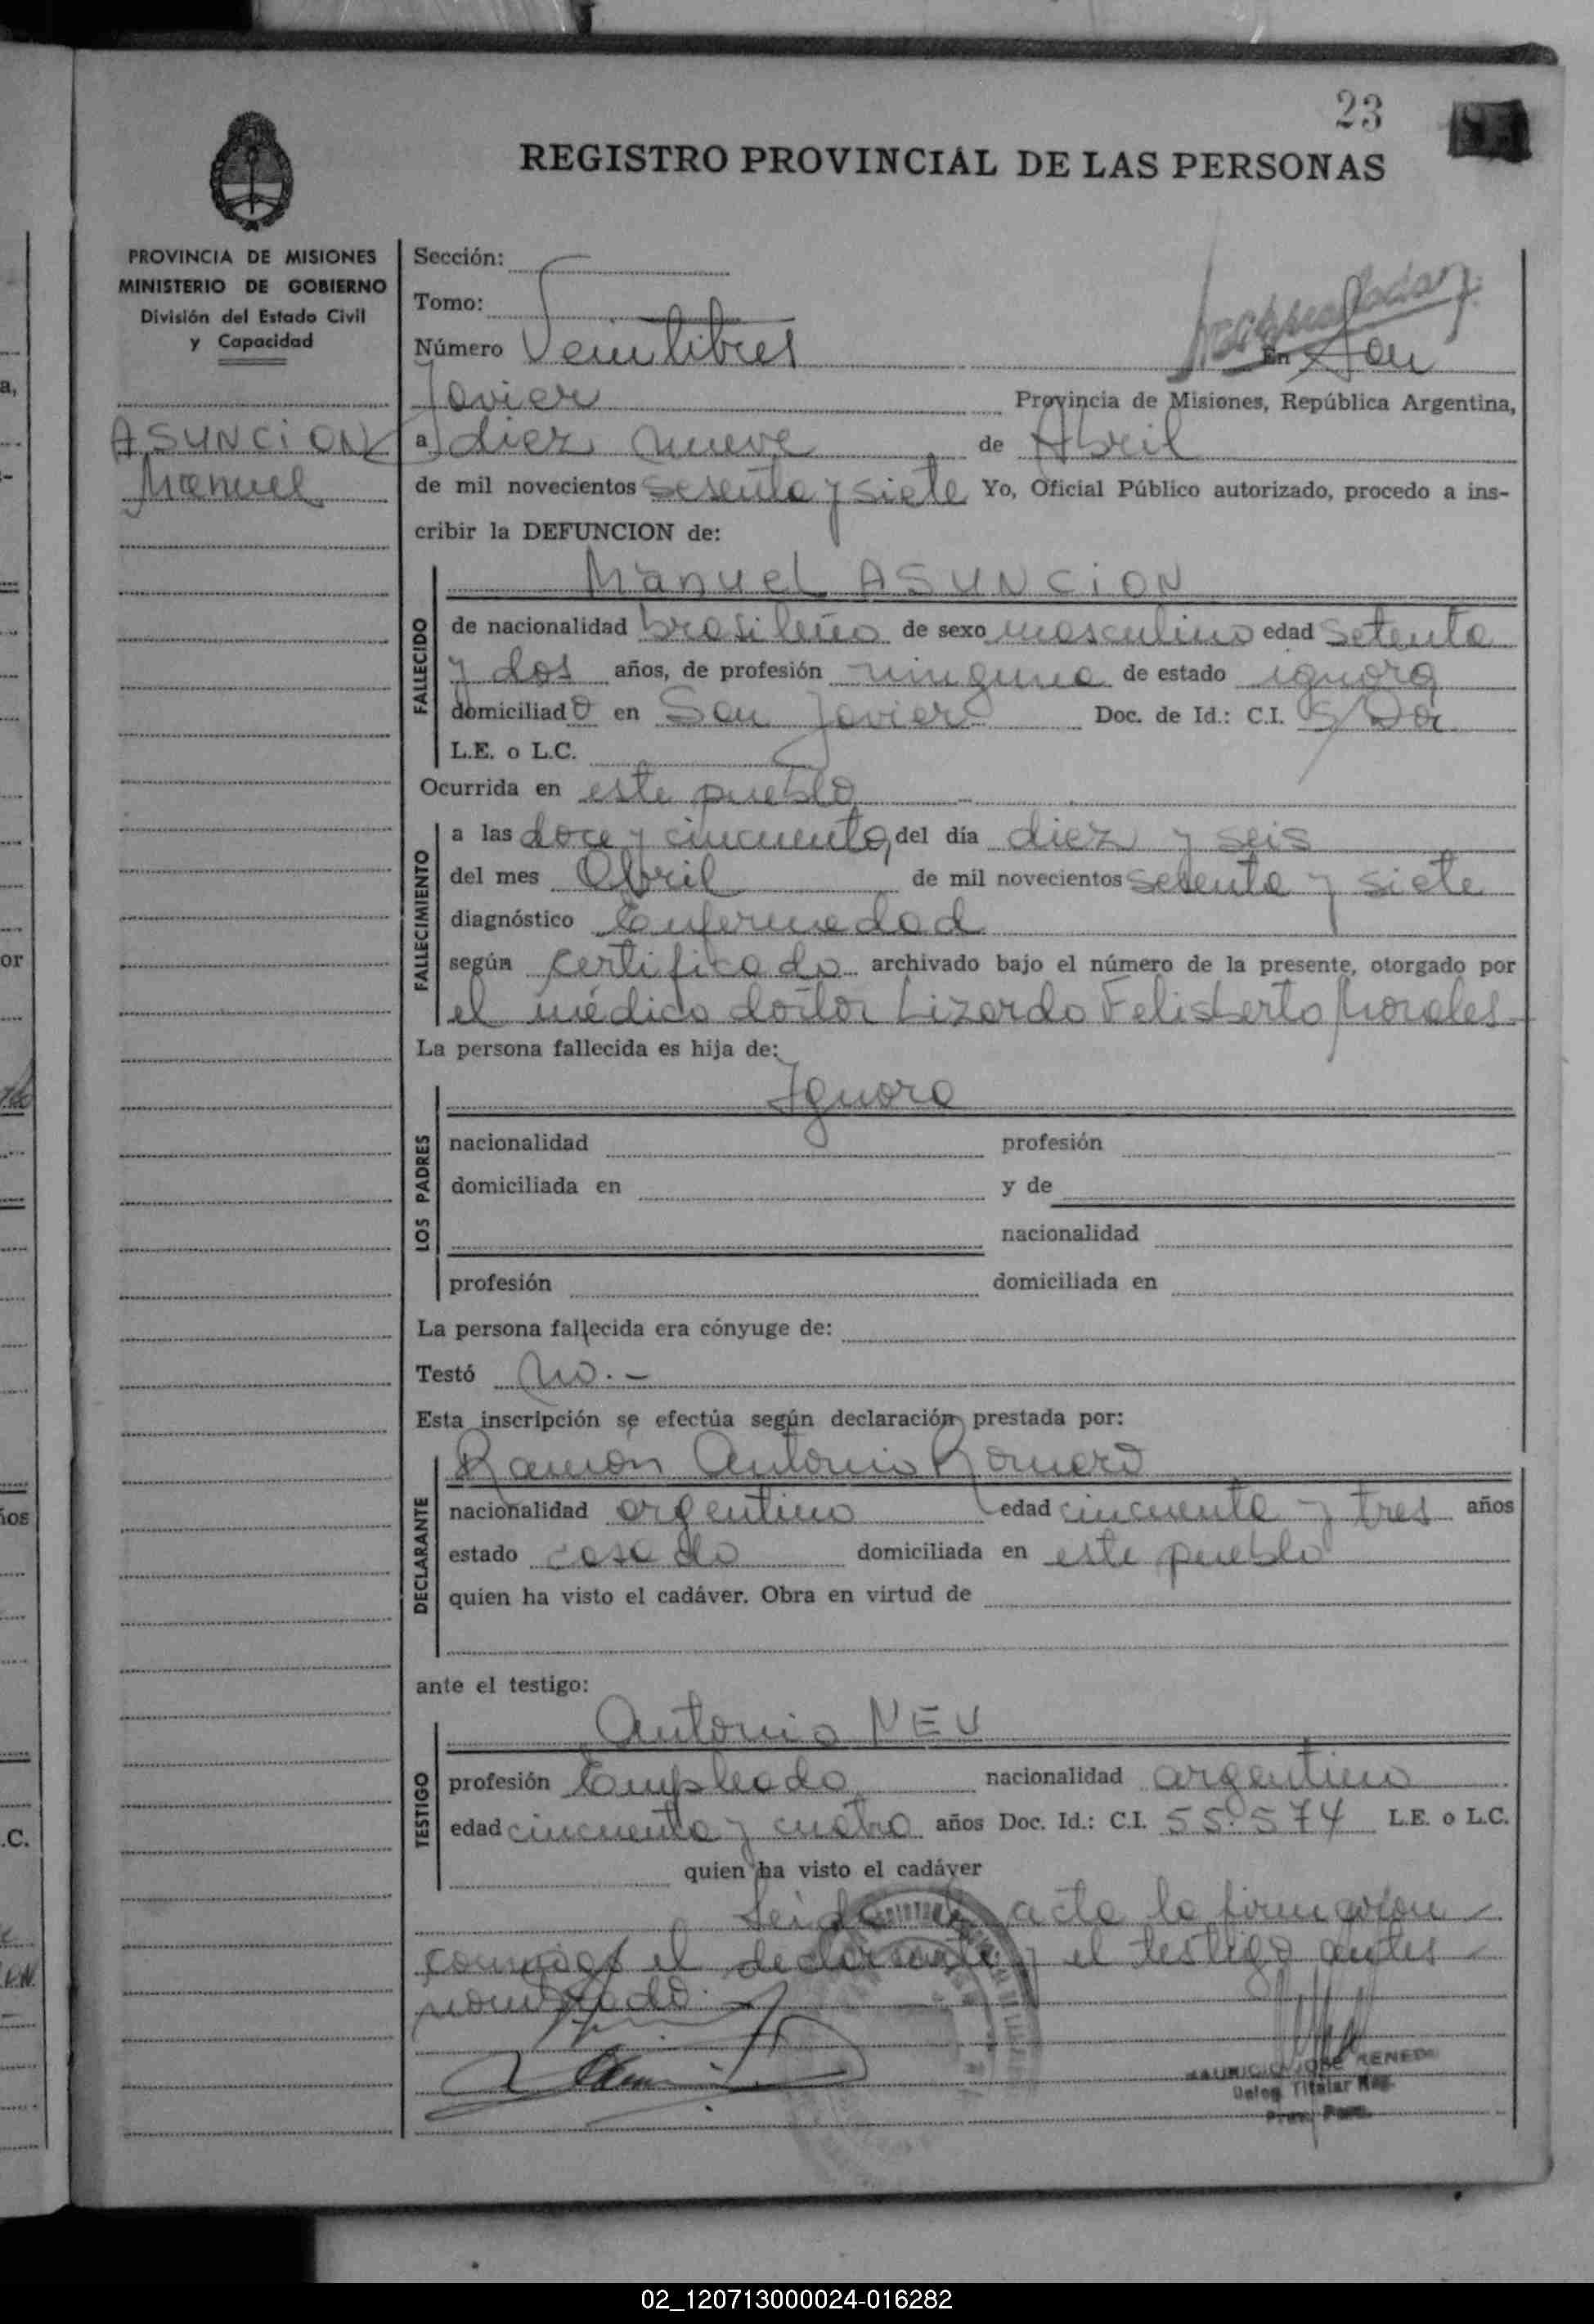 23
REGISTRO PROVINCIAL DE LAS PERSONAS
PROVINCIA DE MISIONES
MINISTERIO DE GOBIERNO
División del Estado Civil
y Capacidad
ASUNCION
Manuel
Sección:
Tomo:
Número Veintitres En San
Javier Provincia de Misiones, República Argentina,
a diez nueve de Abril
de mil novecientos sesenta y siete Yo, Oficial Público autorizado, procedo a ins-
cribir la DEFUNCION de:
FALLECIDO
Manuel ASUNCION
de nacionalidad brasileño de sexo masculino edad setenta
y dos años, de profesión ninguna de estado ignora
domiciliado en San Javier Doc. de Id.: C.I.
L.E. o L.C.
Ocurrida en este pueblo
FALLECIMIENTO
a las doce y cincuenta del día diez y seis
del mes Abril de mil novecientos sesenta y siete
diagnóstico Enfermedad
según certificado archivado bajo el número de la presente, otorgado por
el médico doctor Lizardo Felisberto Morales
La persona fallecida es hija de:
LOS PADRES
Ignora
nacionalidad profesión
domiciliada en y de
nacionalidad
profesión domiciliada en
La persona fallecida era cónyuge de:
Testó no.-
Esta inscripción se efectúa según declaración prestada por:
DECLARANTE
Ramón Antonio Romero
nacionalidad argentino edad cincuenta y tres años
estado casado domiciliada en este pueblo
quien ha visto el cadáver. Obra en virtud de
ante el testigo:
TESTIGO
Antonio NEU
profesión Empleado nacionalidad argentino
edad cincuenta y cuatro años Doc. Id.: C.I. 55.574 L.E. o L.C.
quien ha visto el cadáver
Leida el acta la firmaron
conmigo el declarante y el testigo antes
nombrado.
MAURICIO JOSE RENEDO
Deleg. Titular Reg.
Prov. Pers.
02_120713000024-016282